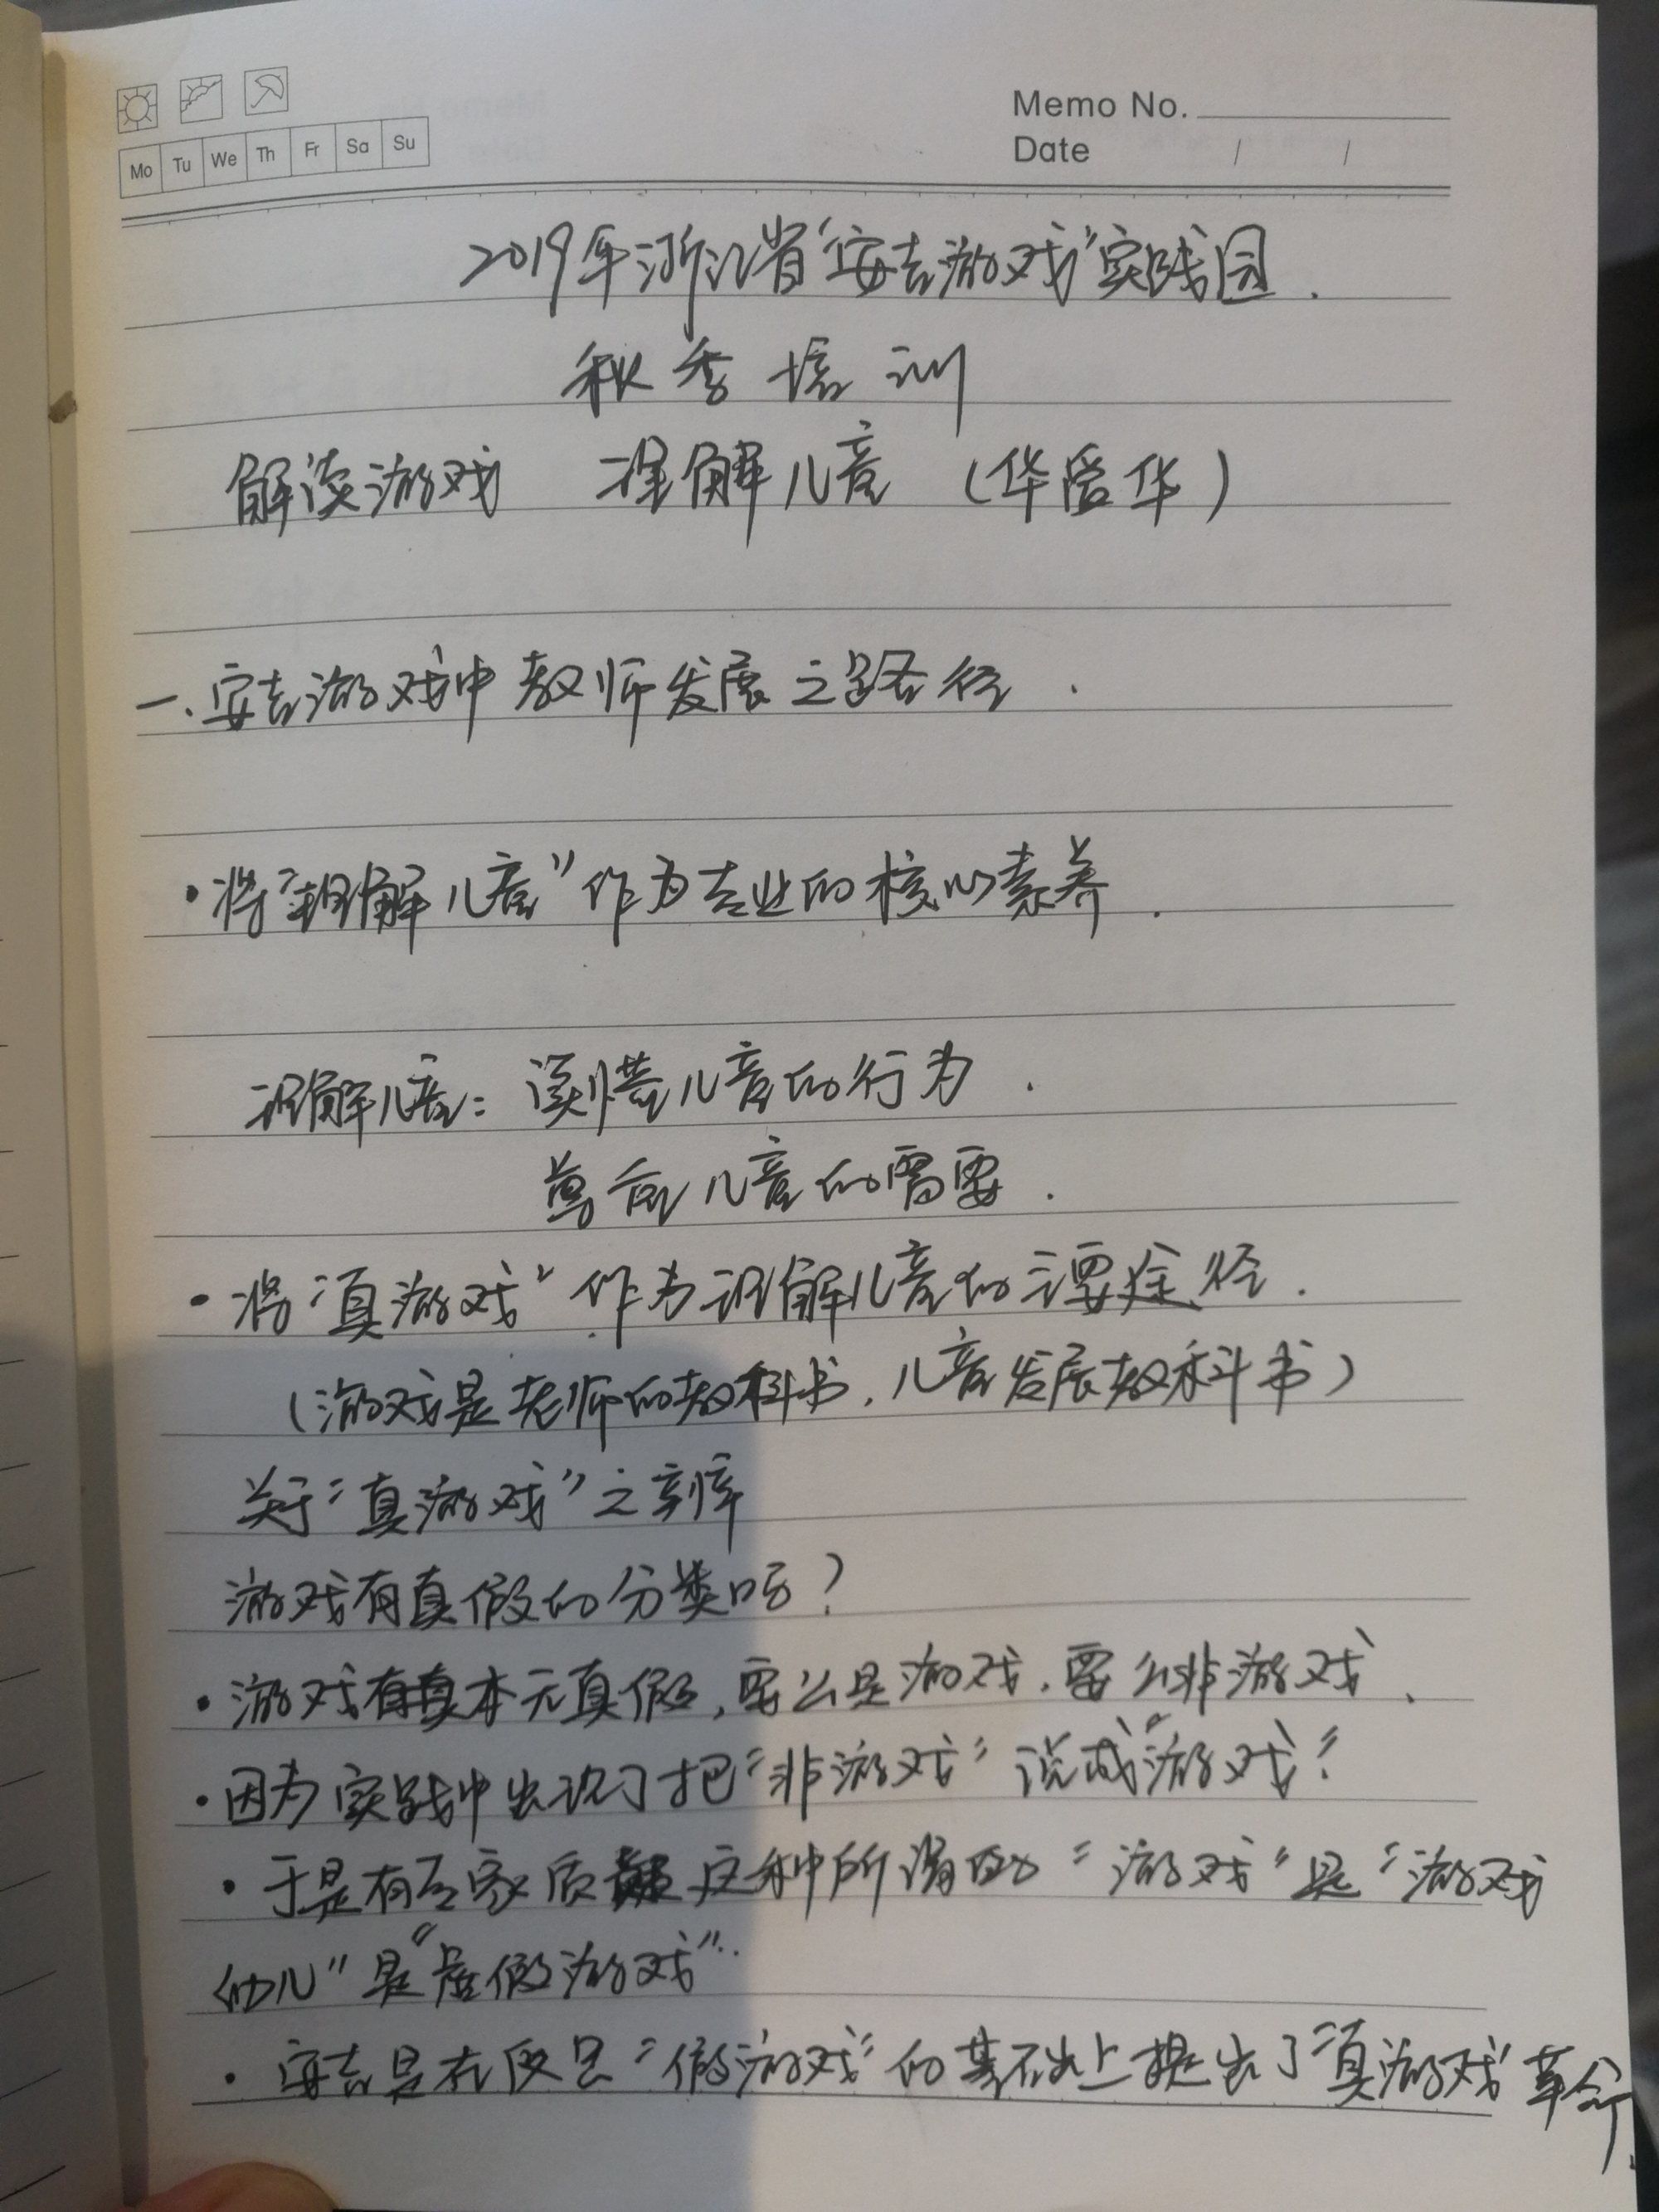 Memo No.
Date / /
Mo Tu We Th Fr Sa Su
2019年浙江省“安吉游戏”实践园.
秋季培训
解读游戏 理解儿童 (华爱华)
一、安吉游戏中教师发展之路径.
·将“理解儿童”作为专业的核心素养.
理解儿童:读懂儿童的行为.
尊重儿童的需要.
·将“真游戏”作为理解儿童的主要途径.
(游戏是老师的教科书,儿童发展教科书)
关于“真游戏”之
游戏有真假的分类吗?
·游戏本无真假,要么是游戏,要么非游戏、
·因为实践中出现了把“非游戏”说成“游戏”
·于是有专家质疑这种所谓的“游戏”是“游戏
幼儿”是“虚假游戏”..
·安吉是在反思“假游戏”的基础上提出了“真游戏”革命.